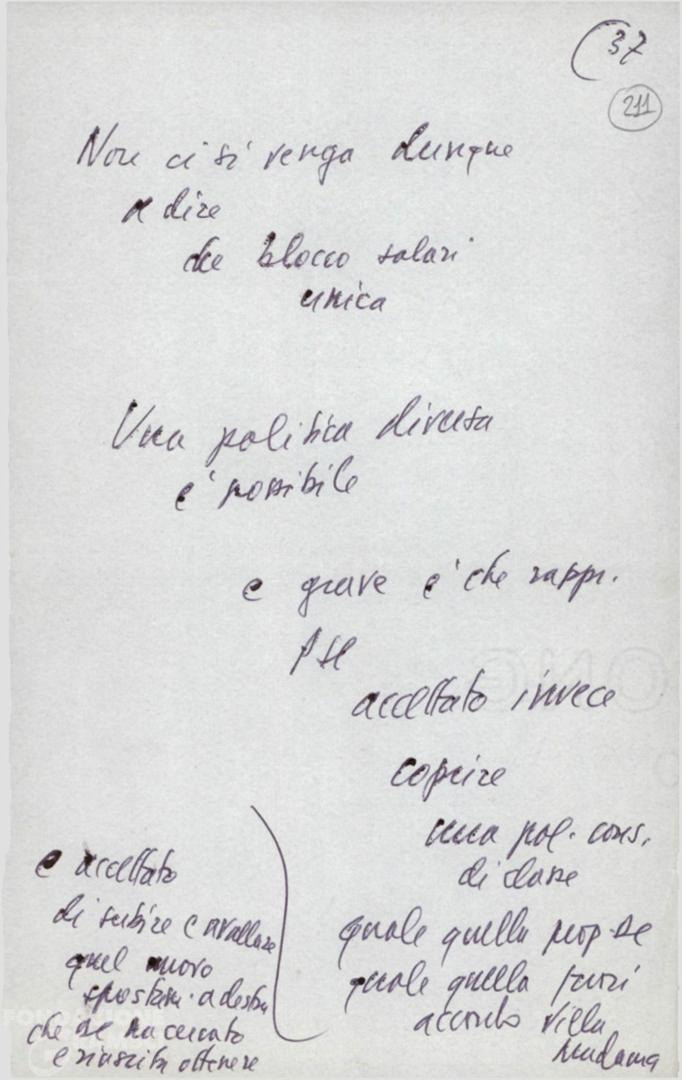 (37
211
Non ci si venga dunque
a dire
che blocco salari
unica
Una politica diversa
e' possibile
e grave e' che rappr.
PSI
accettato invece
coprire
una pol. cons.
di classe
quale quella prop. se
quale quella fuori
accordo Villa
Madama
e accettato
di subire e avallare
quel nuovo
spostam. a destra
che DC ha cercato
e riuscita ottenere
FONDAZIONE